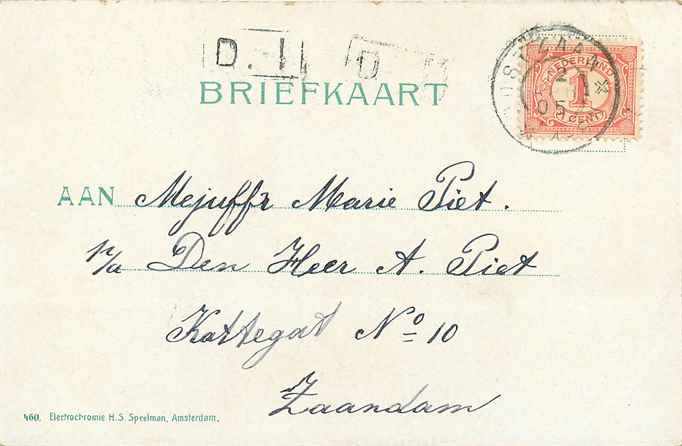 D. I
D
BRIEFKAART
NEDERLAND
1
CENT
05
AAN Mejuffr Marie Piet.
p/a Den Heer A. Piet
Kattegat No 10
Zaandam
460. Electrochromie H.S. Speelman, Amsterdam.